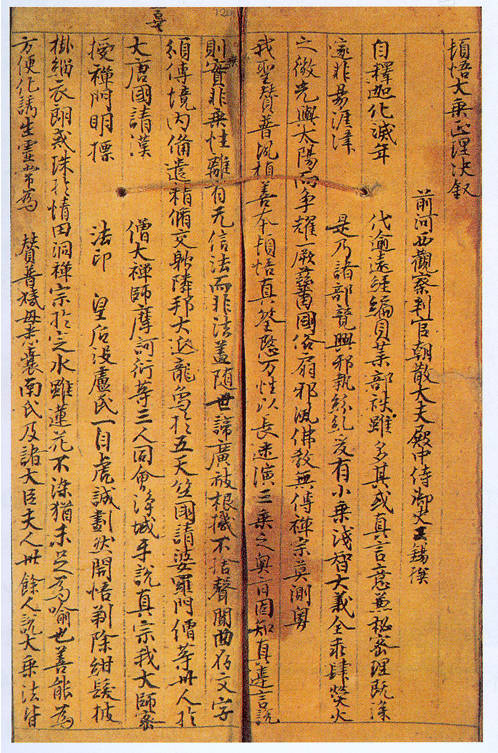 頓悟大乘正理决叙
前河西觀察判官朝散大夫殿中侍御史王錫撰
自釋迦化滅年代逾遠經編貝葉部袟雖多其或真言意兼秘密理既深
邃非易涯津是乃諸部競興邪執紛亂爰有小乘淺智大義全乖肆熒火
之微光與太陽而争耀厥蕃國俗扇邪風佛教無傳禪宗莫測粤
我聖贊普夙植善本頓悟真筌愍万性以長迷演三乘之奥旨固知真違言說
則實非乘性離有无信法而非法盖随世諦廣被根機不捨聲聞曲存文字
頒傳境内備遣精修交聘隣邦大延龍象於五天竺國請婆羅門僧等卅人於
大唐國請漢僧大禪師摩訶衍等三人同會净城乎說真宗我大師密
授禪門明標法印皇后没盧氏一自虔誠劃然開悟剃除紺髮披
掛緇衣朗戒珠於情田洞禪宗於定水雖蓮花不染猶未足為喻也善能為
方便化誘生靈常為贊普姨母悉囊南氏及諸大臣夫人卅餘人說大乘法皆